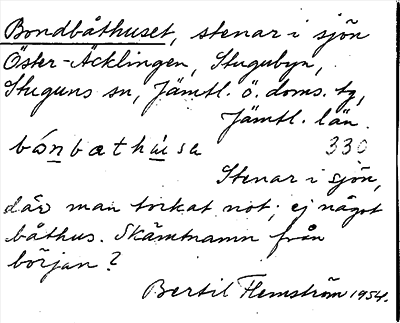 Bondbåthuset, stenar i sjön
Öster-Äcklingen, Stugubyn,
Stuguns sn, Jämtl. ö. doms. tg,
Jämtl. län.
bónbœthùsa 330
Stenar i sjön,
där man torkat not; ej något
båthus. Skämtnamn från
början?
Bertil Flemström 1954.